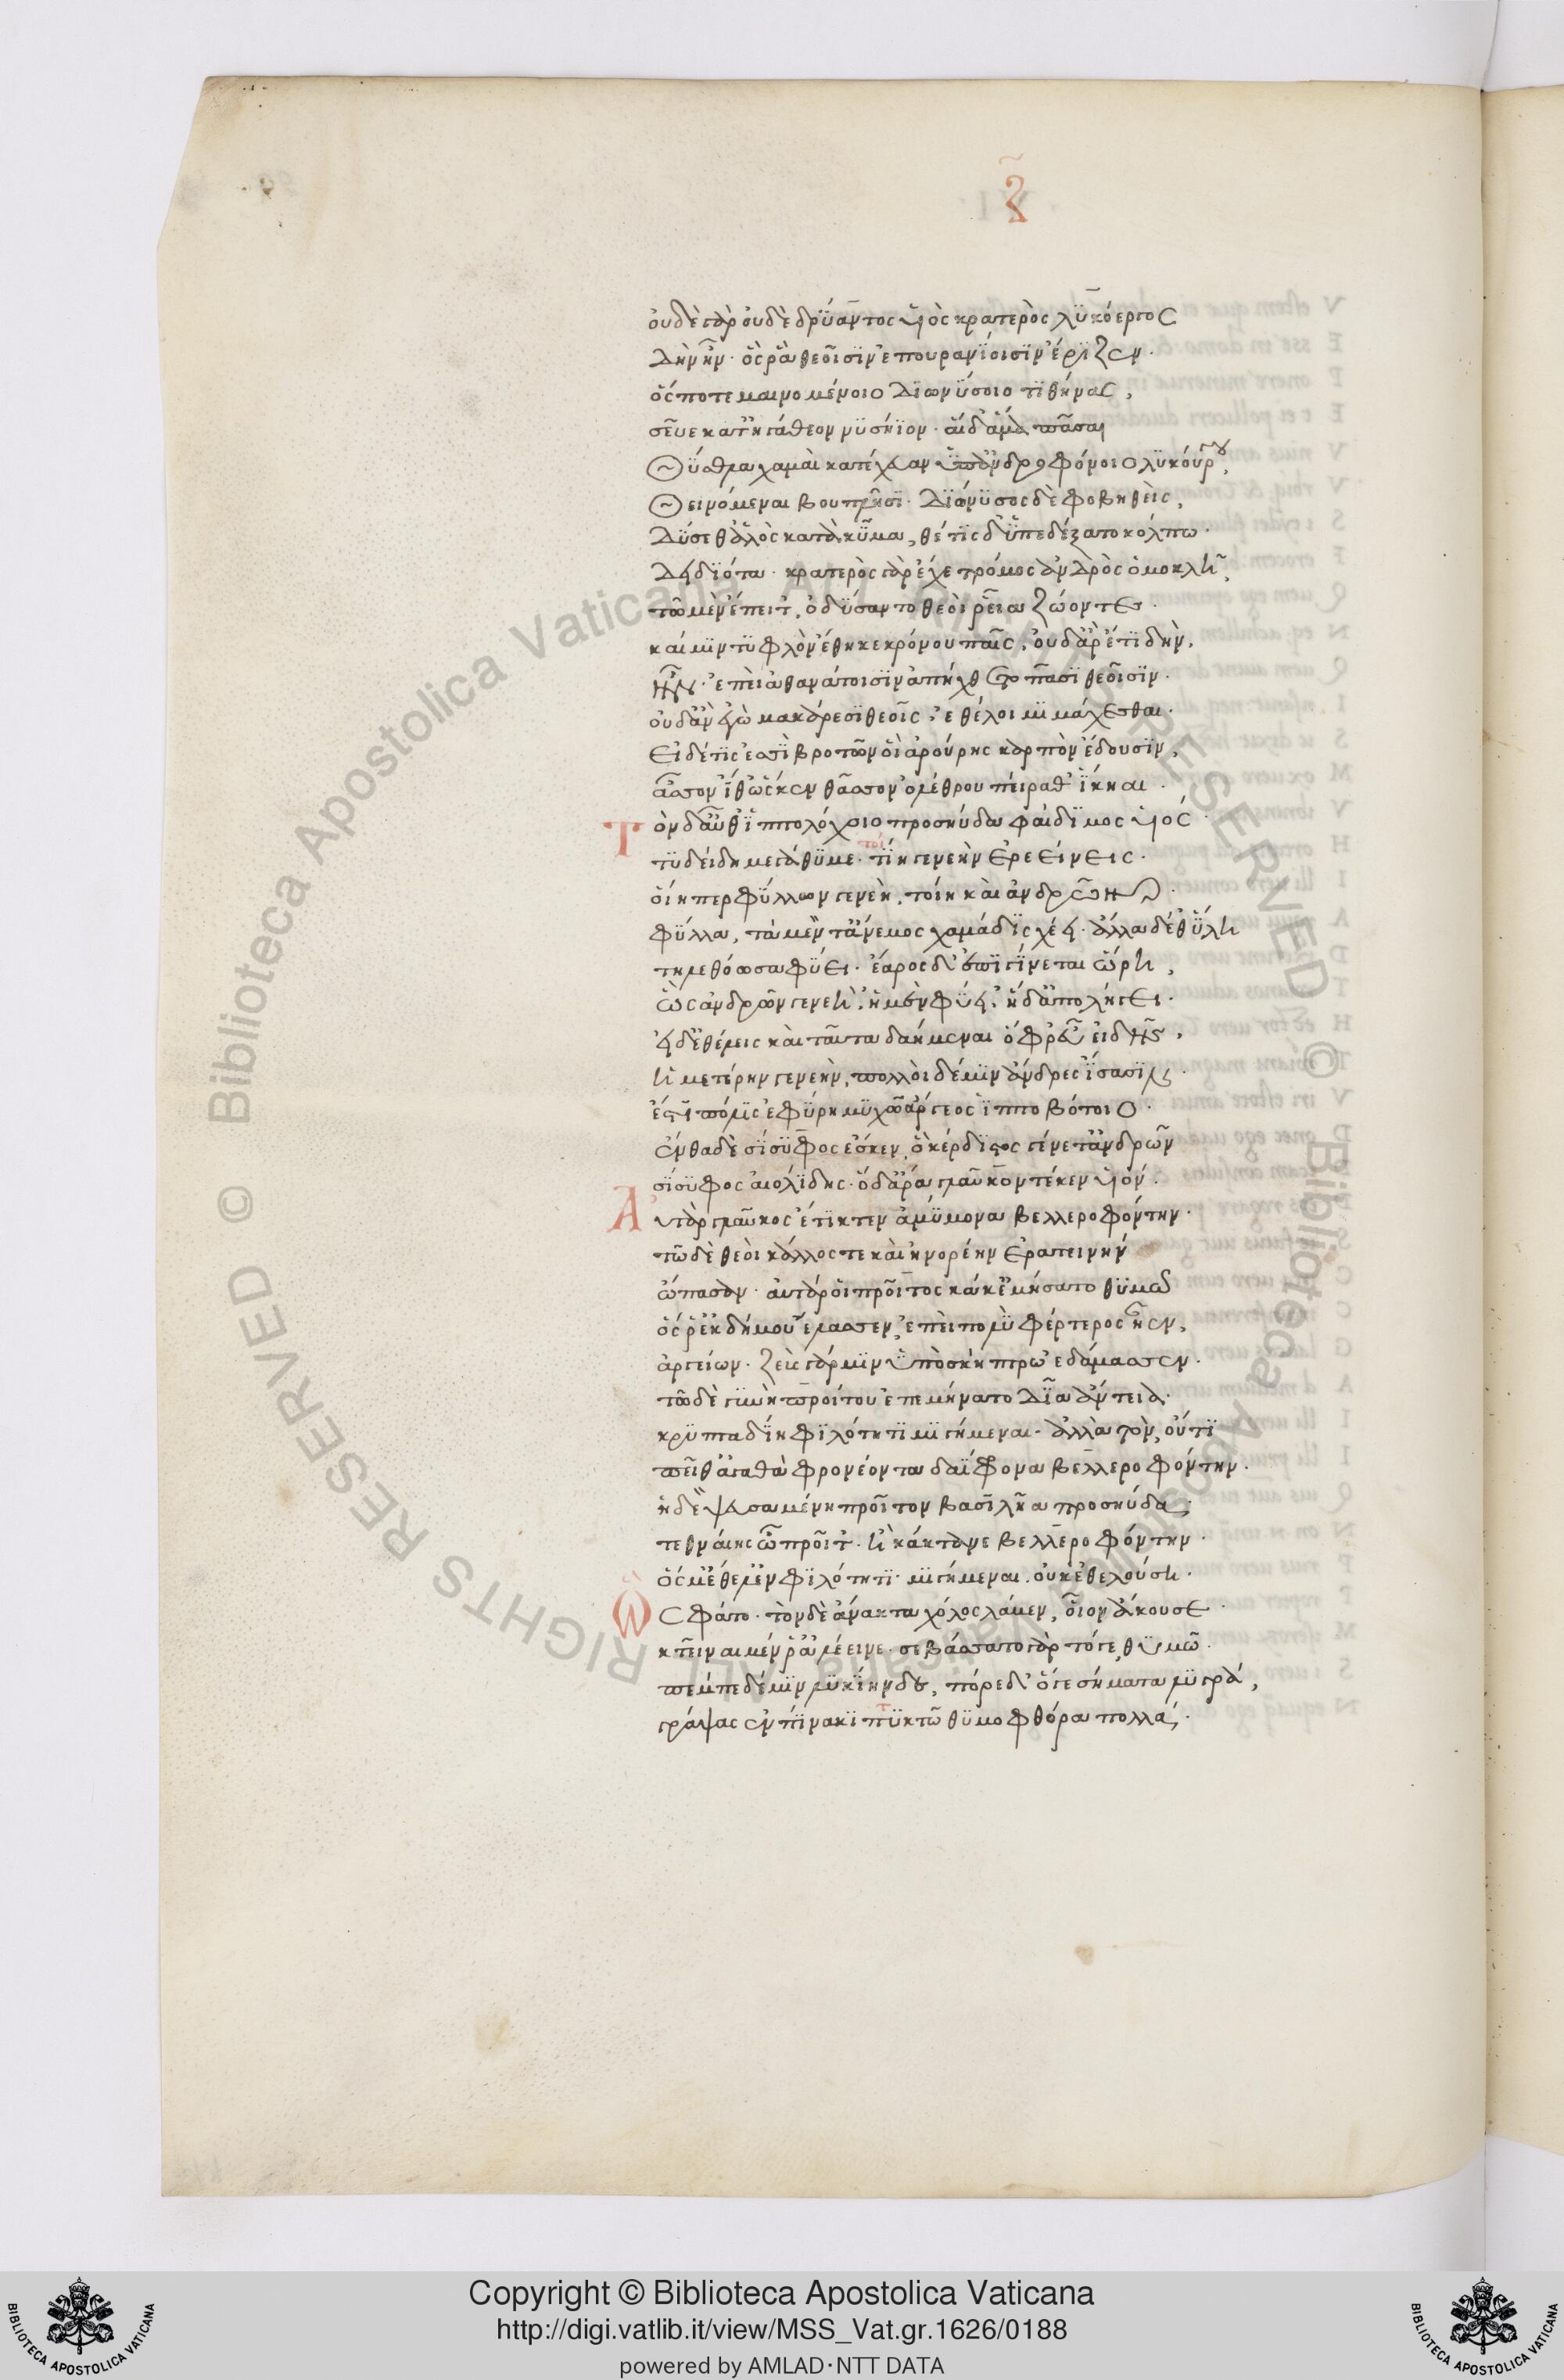 ζ
οὐδὲ γὰρ οὐδὲ δρύαντος υἱὸς κρατερὸς λυκόεργος
δὴν ἦν· ὅς ῥα θεοῖσιν ἐπουρανίοισιν ἔριζεν·
ὅς ποτε μαινομένοιο διωνύσοιο τιθήνας,
σεῦε κατ' ἠγάθεον νυσήϊον· αἱ δ' ἅμα πᾶσαι
θύσθλα χαμαὶ κατέχευαν ὑπ' ἀνδροφόνοιο λυκούργου,
θεινόμεναι βουπλῆγι· διόνυσος δὲ φοβηθεὶς,
δύσεθ' ἁλὸς κατὰ κῦμα, θέτις δ' ὑπεδέξατο κόλπω·
δειδιότα· κρατερὸς γὰρ ἔχε τρόμος ἀνδρὸς ὁμοκλῆ,
τῶ μὲν ἔπειτ' ὀδύσαντο θεοὶ ῥεῖα ζώοντες·
καί μιν τυφλὸν ἔθηκε κρόνου παῖς, οὐδ' ἄρ' ἔτι δὴν,
ἦν· ἐπεὶ ἀθανάτοισιν ἀπήχθετο πᾶσι θεοῖσιν·
οὐδ' ἂν ἐγὼ μακάρεσι θεοῖς, ἐθέλοιμι μάχεσθαι·
εἰ δέ τις ἐσσὶ βροτῶν οἳ ἀρούρης καρπὸν ἔδουσιν,
ἆσσον ἴθ' ὥς κεν θᾶσσον ὀλέθρου πείραθ' ἵκηαι·
Τὸν δ' αὖθ' ἱππολόχοιο προσηύδα φαίδιμος υἱός·
τυδείδη μεγάθυμε· τίη γενεὴν ἐρεείνεις·
οἵη περ φύλλων γενεὴ, τοίη καὶ ἀνδρῶν·
φύλλα, τὰ μέν τ' ἄνεμος χαμάδις χέει· ἄλλα δέ θ' ὕλη
τηλεθόωσα φύει· ἔαρος δ' ἐπιγίνεται ὥρη,
ὣς ἀνδρῶν γενεὴ, ἡ μὲν φύει, ἡ δ' ἀπολήγει·
εἰ δ' ἐθέλεις καὶ ταῦτα δαήμεναι ὄφρ' εὖ εἰδῆς,
ἡμετέρην γενεὴν, πολλοὶ δέ μιν ἄνδρες ἴσασιν·
ἔστι πόλις ἐφύρη μυχῶ ἄργεος ἱπποβότοιο·
ἔνθα δὲ σίσυφος ἔσκεν, ὃ κέρδιστος γένετ' ἀνδρῶν
σίσυφος αἰολίδης· ὃ δ' ἄρα γλαῦκον τέκεν υἱόν·
Αὐτὰρ γλαῦκος ἔτικτεν ἀμύμονα βελλεροφόντην·
τῶ δὲ θεοὶ κάλλος τε καὶ ἠνορέην ἐρατεινὴν
ὤπασαν· αὐτάρ οἱ προῖτος κάκ' ἐμήσατο θυμῶ
ὅς ῥ' ἐκ δήμου ἔλασσεν, ἐπεὶ πολὺ φέρτερος ἦεν,
ἀργείων· ζεὺς γάρ μιν ὑπὸ σκήπτρω ἐδάμασσεν·
τῶ δὲ γυνὴ προίτου ἐπεμήνατο δῖα ἄντεια·
κρυπταδίη φιλότητι μιγήμεναι· ἀλλὰ τὸν, οὔτι
πεῖθ' ἀγαθὰ φρονέοντα δαΐφρονα βελλεροφόντην·
ἡ δὲ ψευσαμένη προῖτον βασιλῆα προσηύδα,
τεθναίης ὦ προῖτ'· ἢ κάκτανε βελλεροφόντην·
ὅς μ' ἔθελεν φιλότητι μιγήμεναι· οὐκ ἐθελούση·
Ὣς φάτο· τὸν δὲ ἄνακτα χόλος λάμεν, οἷον ἄκουσε·
κτεῖναι μέν ῥ' ἀλέεινε· σεβάσσατο γὰρ τόγε θυμῶ·
πέμπε δέ μιν λυκίηνδε, πόρε δ' ὅγε σήματα λυγρά,
γράψας ἐν πίνακι πτυκτῶ θυμοφθόρα πολλά·
Copyright © Biblioteca Apostolica Vaticana
http://digi.vatlib.it/view/MSS_Vat.gr.1626/0188
powered by AMLAD·NTT DATA